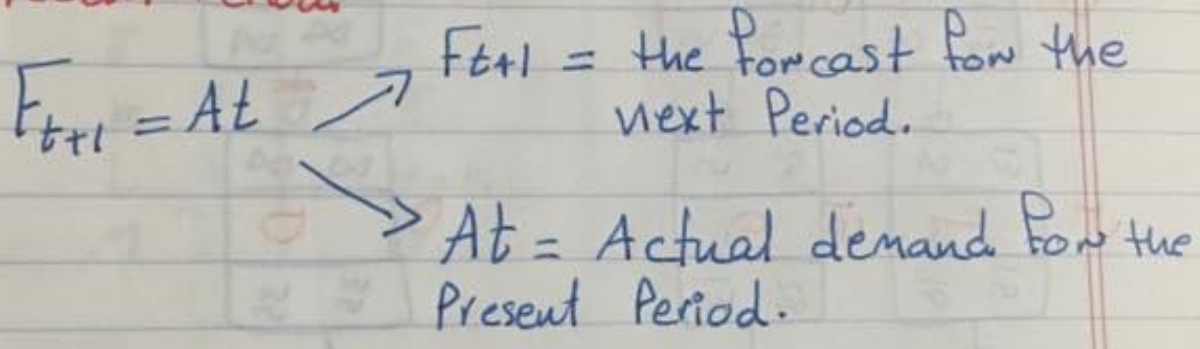 F_{t+1} = At
Ft+1 = the forcast for the
next Period.
At = Actual demand for the
Present Period.